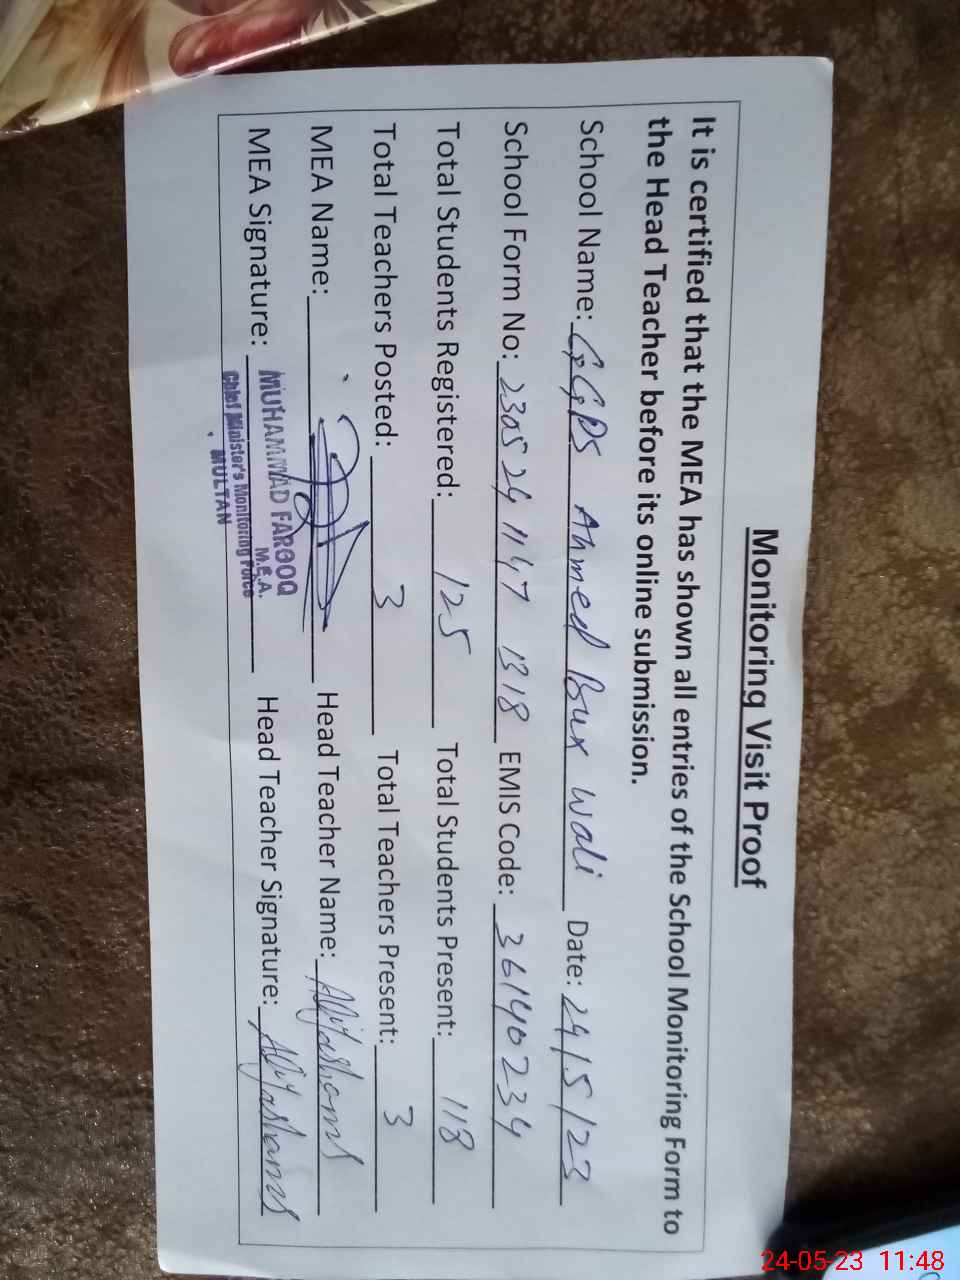 Monitoring Visit Proof
It is certified that the MEA has shown all entries of the School Monitoring Form to
the Head Teacher before its online submission.
School Name: GGPS Ahmed Bux Wali Date: 24/5/23
School Form No: 230524 1147 1318 EMIS Code: 36140234
Total Students Registered: 125 Total Students Present: 118
Total Teachers Posted: 3 Total Teachers Present: 3
MEA Name: Head Teacher Name:
MEA Signature: Head Teacher Signature:
MUHAMMAD FAROOQ
M.E.A.
Chief Minister's Monitoring Force
MULTAN
24-05-23 11:48